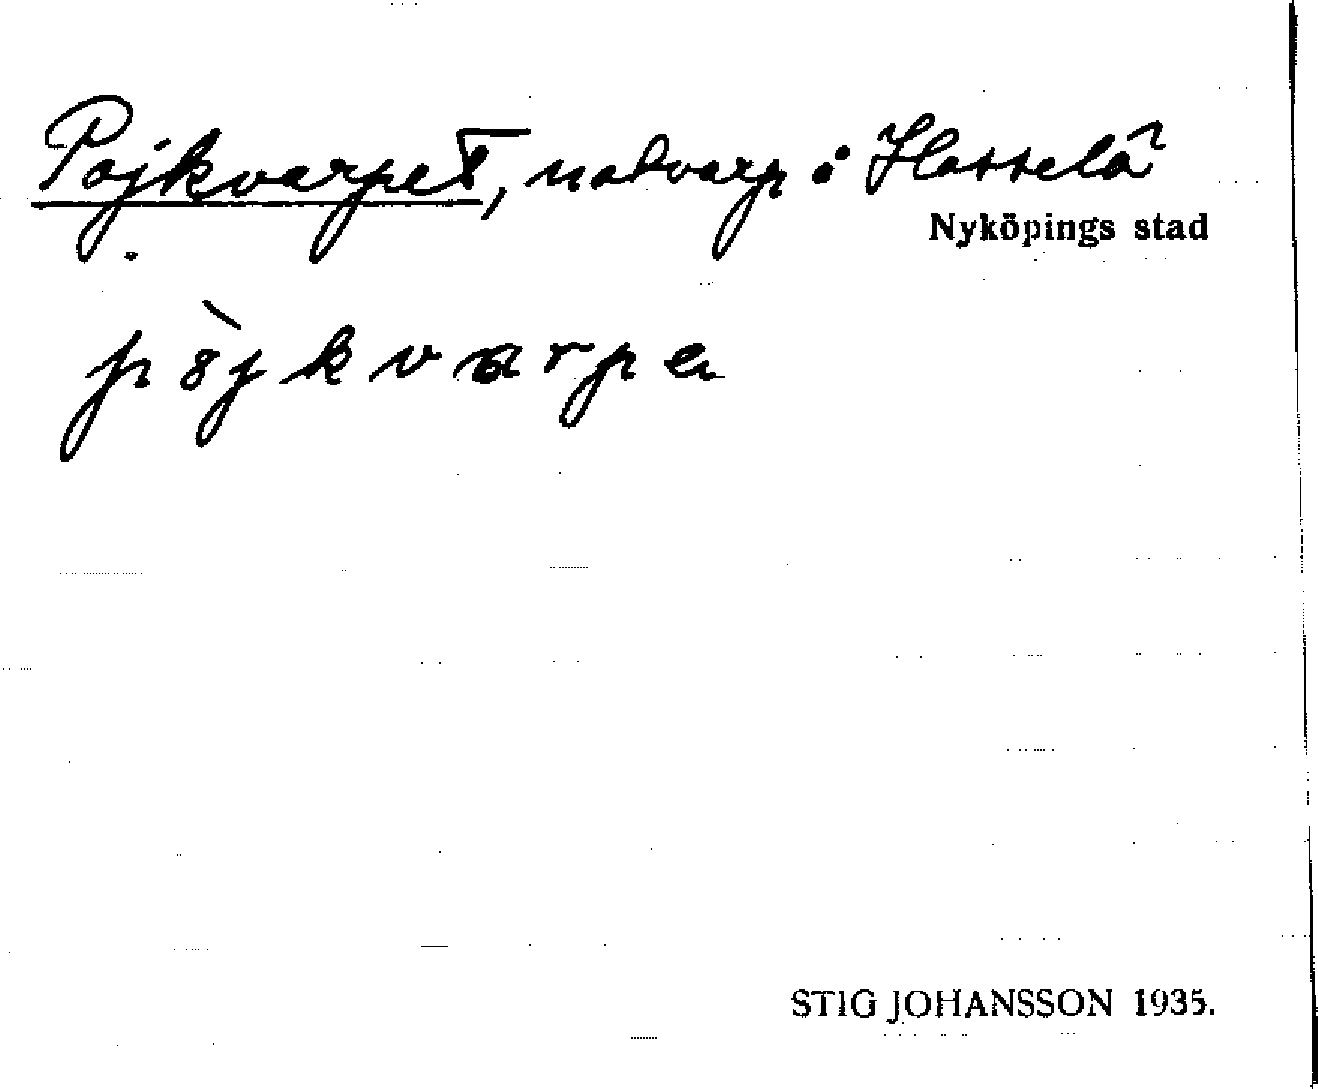 Pojkvarpet, notvarp i Hasselö
Nyköpings stad
p8̀jkvarpa
STIG JOHANSSON 1935.